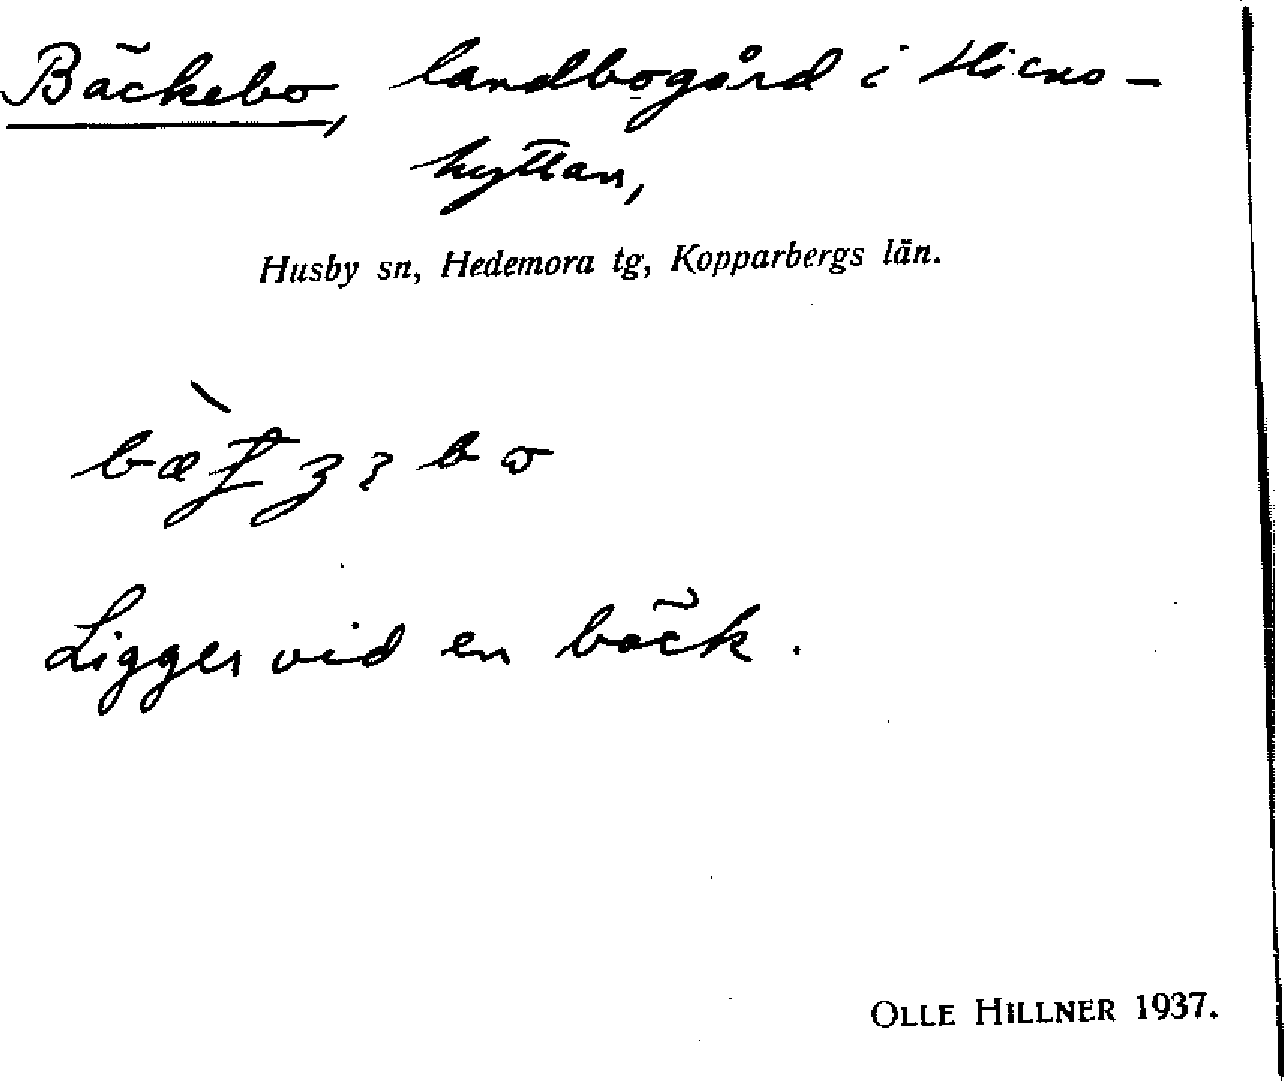 Bäckebo, landbogård i Hiens-
hyttan,
Husby sn, Hedemora tg, Kopparbergs län.
Ligger vid en bäck.
OLLE HILLNER 1937.